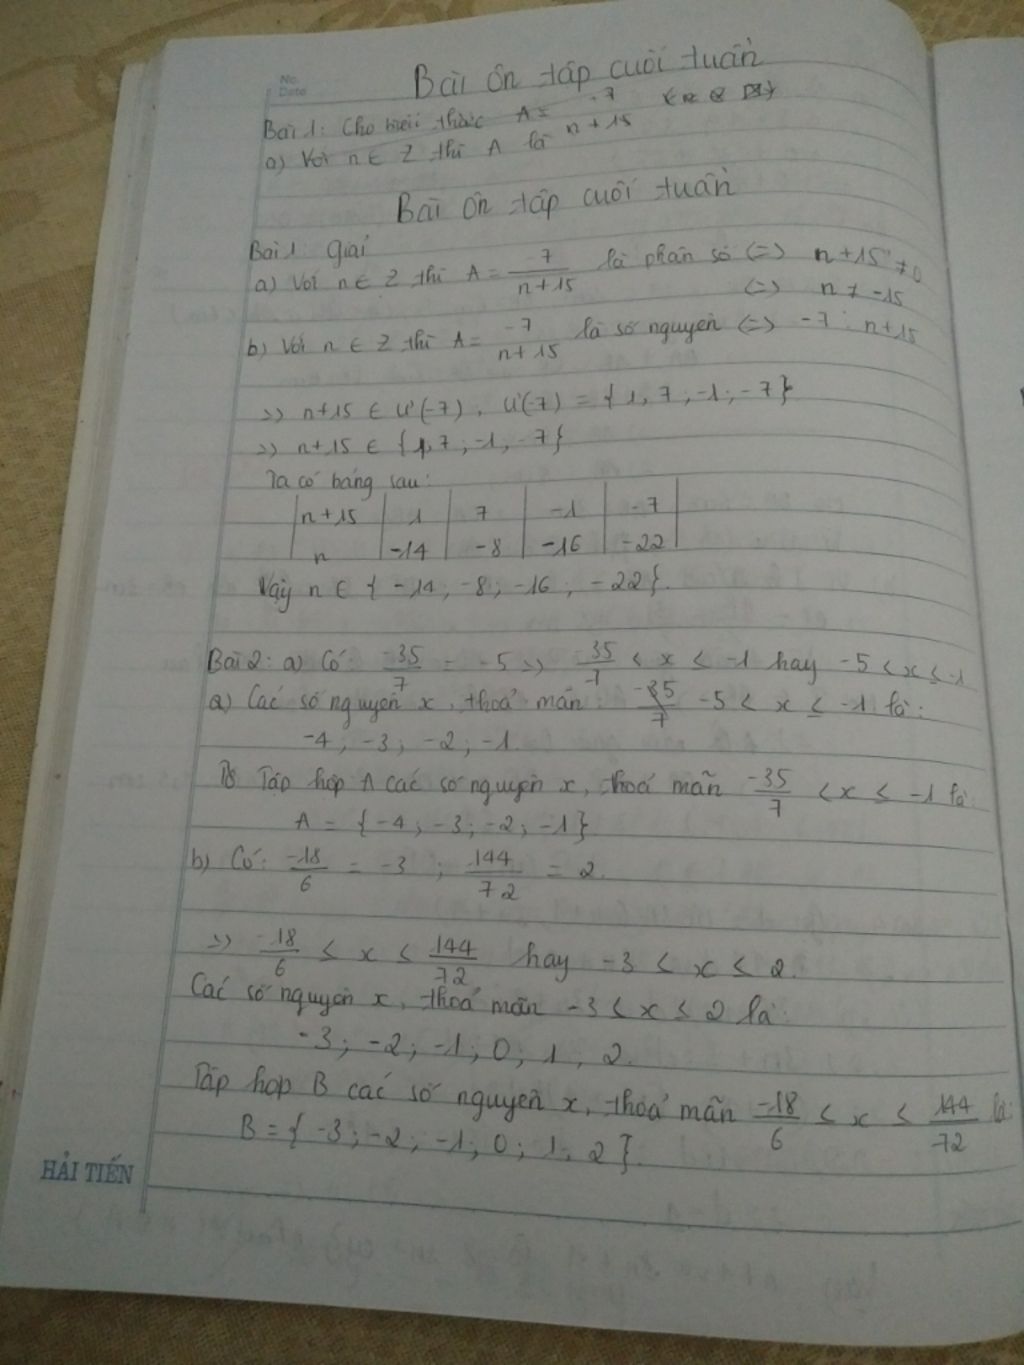 No.
Date
Bài ôn tập cuối tuần
Bài 1: Cho biểu thức A = -7/n+15
a) Với n ∈ Z thì A là
Bài ôn tập cuối tuần
Bài 1: Giải
a) Với n ∈ Z thì A = -7/n+15 là phân số <=> n+15 ≠ 0
<=> n ≠ -15
b) Với n ∈ Z thì A = -7/n+15 là số nguyên <=> -7 ⋮ n+15
=> n+15 ∈ Ư(-7), Ư(-7) = {1, 7; -1; -7}
=> n+15 ∈ {1, 7; -1, -7}
Ta có bảng sau:
n+15 | 1 | 7 | -1 | -7
n | -14 | -8 | -16 | -22
Vậy n ∈ {-14; -8; -16; -22}.
Bài 2: a) Có: -35/7 = -5 => -35/7 < x ≤ -1 hay -5 < x ≤ -1
a) Các số nguyên x, thoả mãn: -5 < x ≤ -1 là:
-4; -3; -2; -1.
Tập hợp A các số nguyên x, thoả mãn -35/7 < x ≤ -1 là:
A = {-4; -3; -2; -1}
b) Có: -18/6 = -3; 144/72 = 2.
=> -18/6 ≤ x ≤ 144/72 hay -3 ≤ x ≤ 2.
Các số nguyên x, thoả mãn -3 ≤ x ≤ 2 là:
-3; -2; -1; 0; 1; 2.
Tập hợp B các số nguyên x, thoả mãn -18/6 ≤ x ≤ 144/72 là:
B = {-3; -2; -1; 0; 1; 2}.
HẢI TIẾN